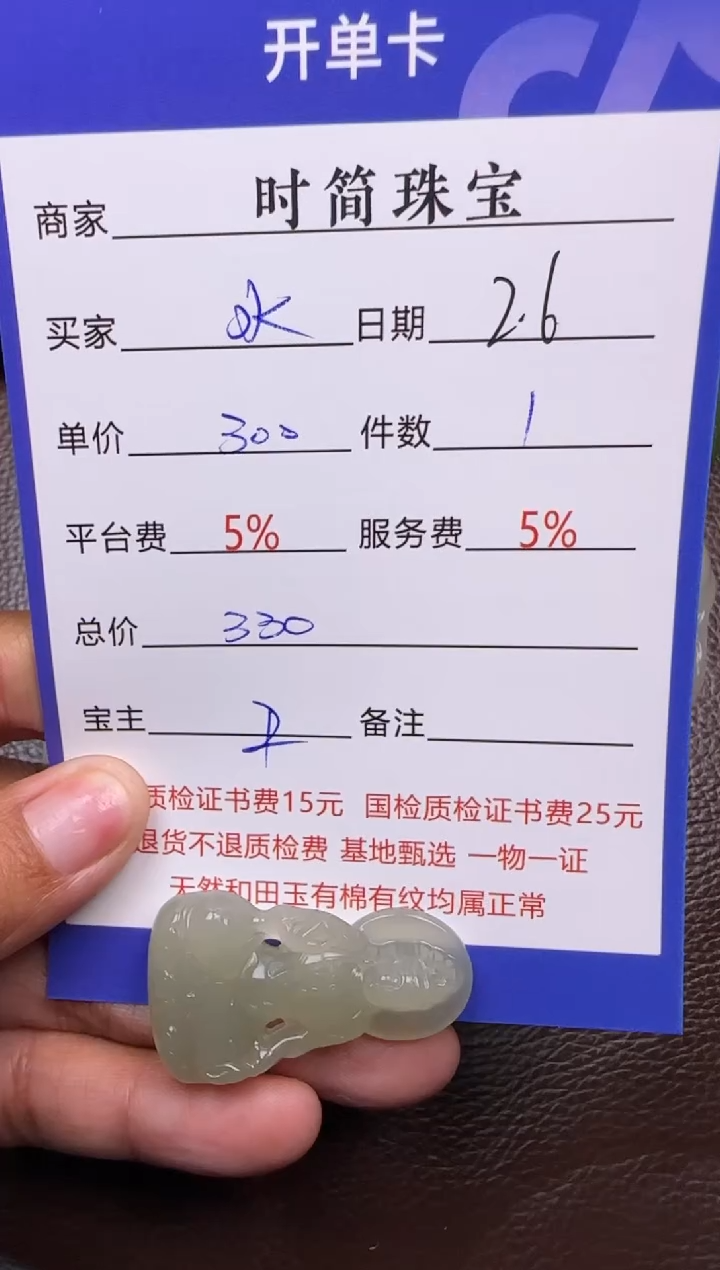 开单卡
商家 时简珠宝
买家 水 日期 2.6
单价 300 件数 1
平台费 5% 服务费 5%
总价 330
宝主 备注
质检证书费15元 国检质检证书费25元
退货不退质检费 基地甄选 一物一证
天然和田玉有棉有纹均属正常